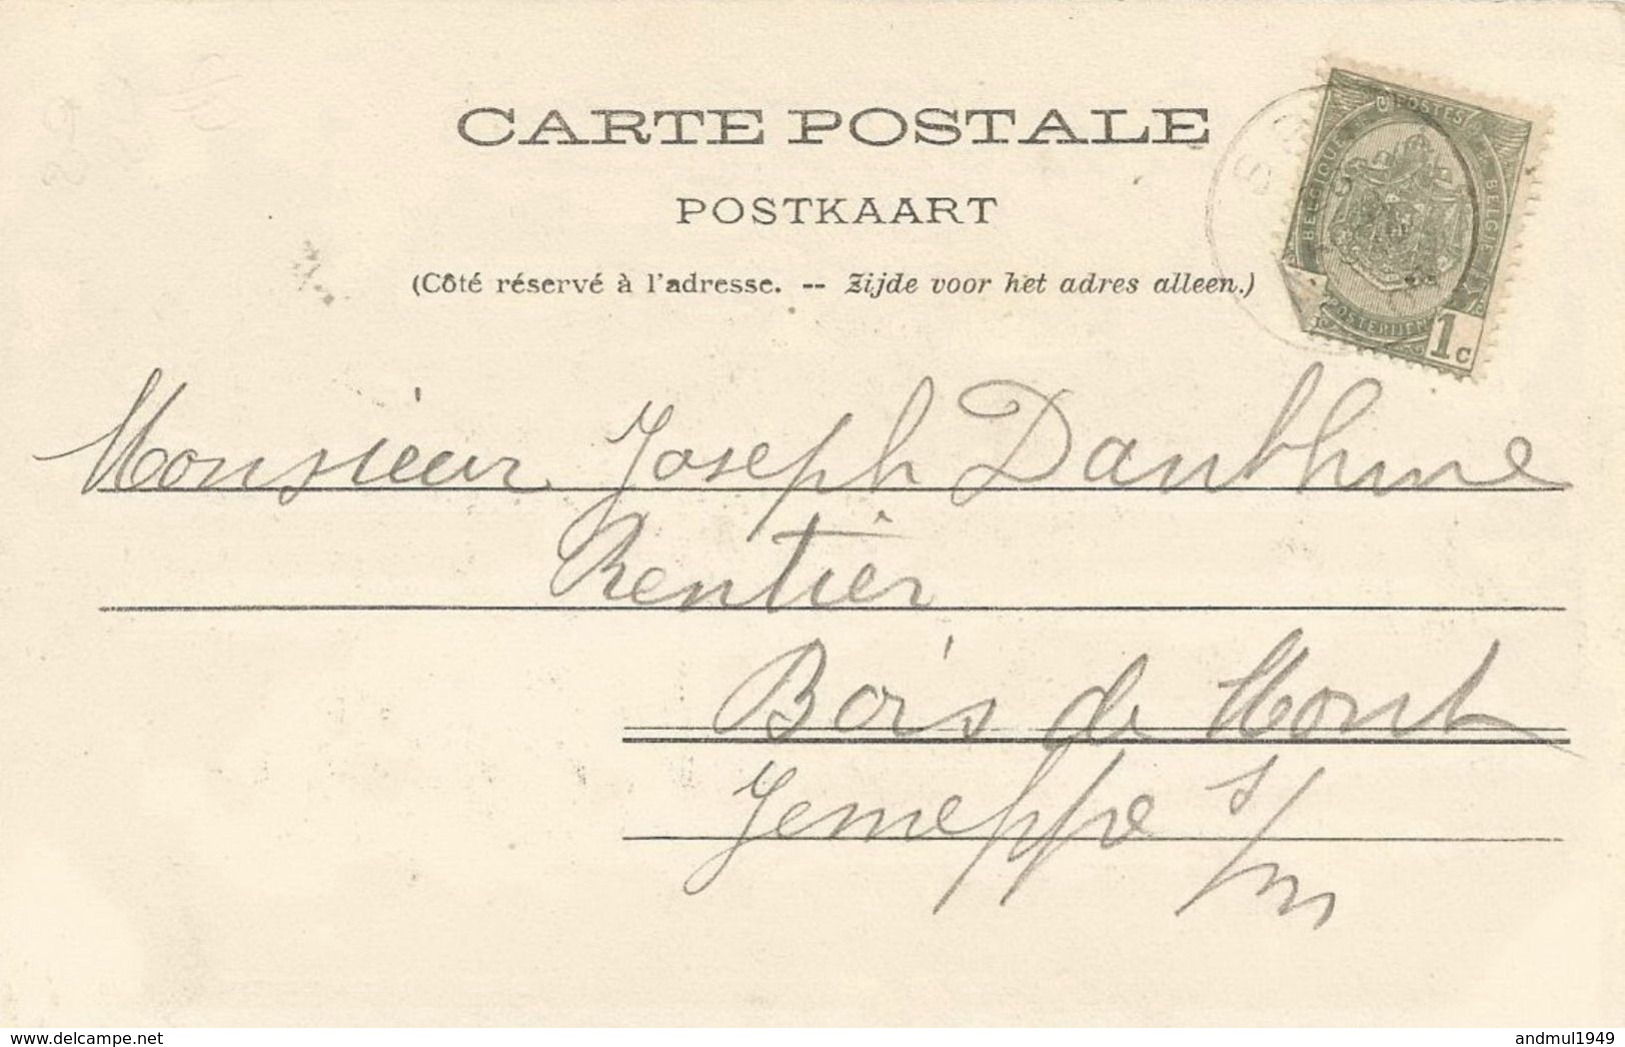 CARTE POSTALE
POSTKAART
(Côté réservé à l'adresse. -- Zijde voor het adres alleen.)
POSTES
BELGIQUE
BELGIË
POSTERIJEN
1c
Monsieur Joseph Dauthine
Rentier
Bois de Mont
Jemeppe s/m
delcampe.net
andmul1949